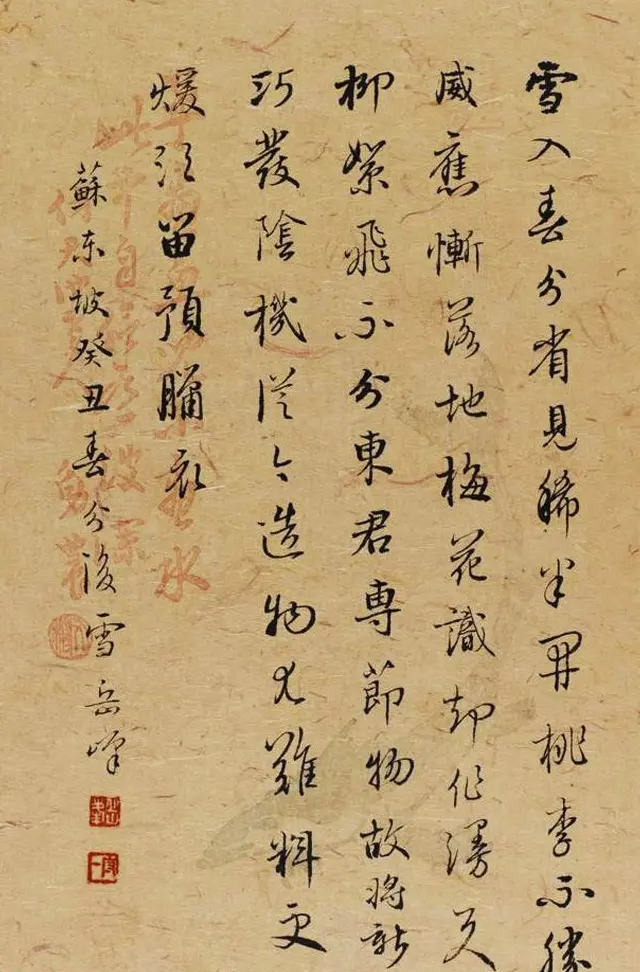 雪入春分省見稀半開桃李不勝
威應慚落地梅花識却作漫天
柳絮飛不分東君專節物故將新
巧發陰機從今造物尤難料更
煖須留預臘衣
蘇東坡癸丑春分後雪岳峰